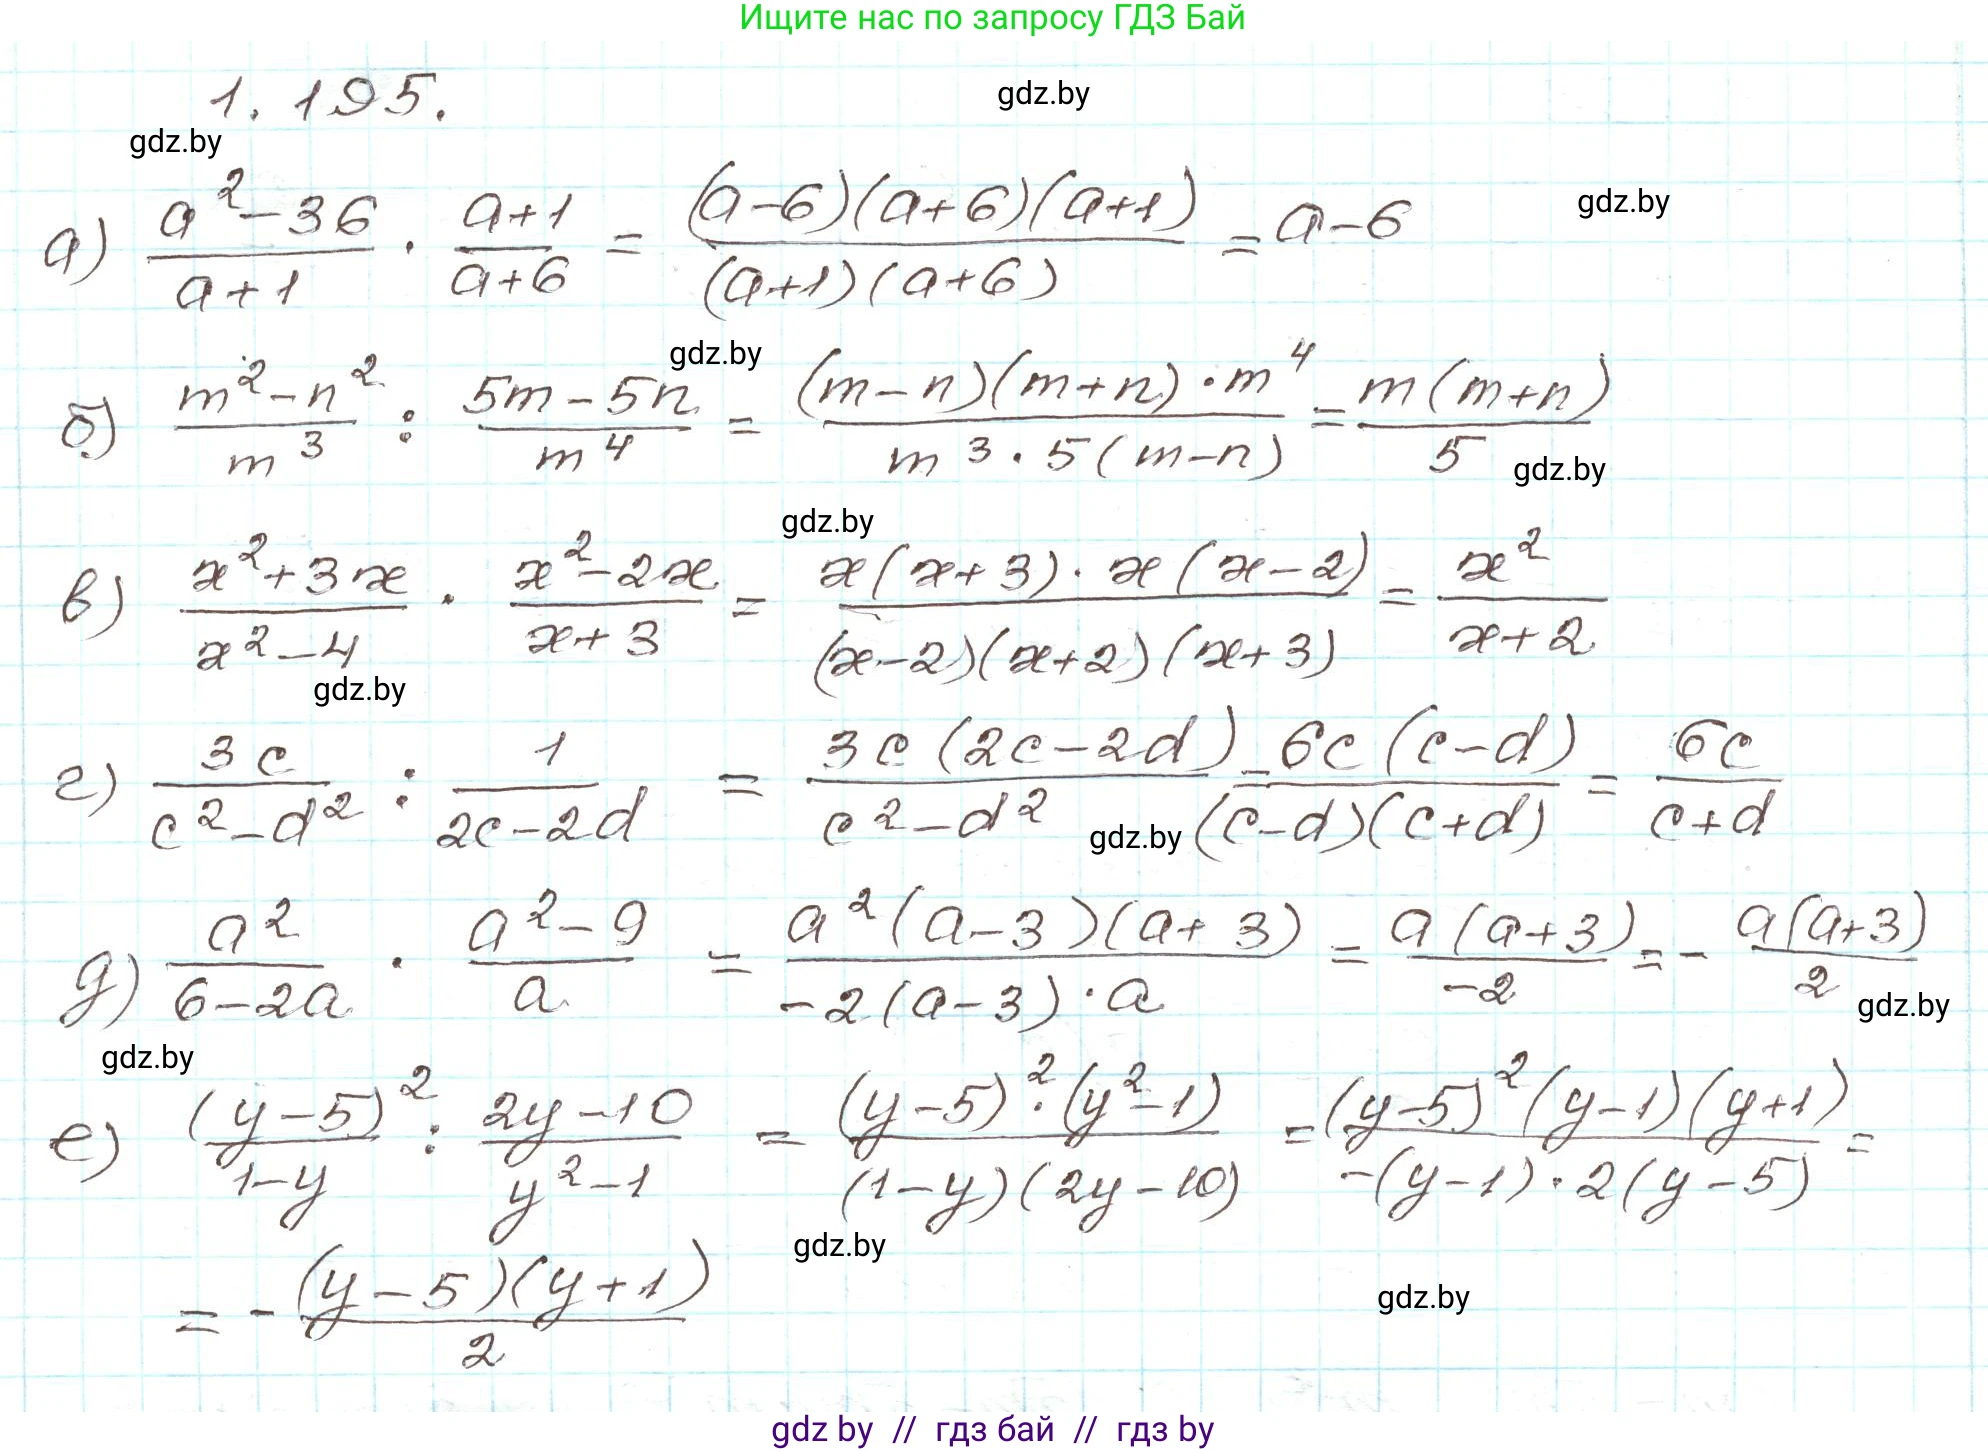 Ищите нас по запросу ГДЗ Бай
1.195.
gdz.by
gdz.by
gdz.by
а) (a² - 36)/(a+1) · (a+1)/(a+6) = ((a-6)(a+6)(a+1))/((a+1)(a+6)) = a-6
gdz.by
б) (m² - n²)/m³ : (5m - 5n)/m⁴ = ((m-n)(m+n)·m⁴)/(m³·5(m-n)) = m(m+n)/5
gdz.by
gdz.by
в) (x² + 3x)/(x² - 4) · (x² - 2x)/(x+3) = (x(x+3)·x(x-2))/((x-2)(x+2)(x+3)) = x²/(x+2)
gdz.by
г) 3c/(c² - d²) : 1/(2c - 2d) = 3c(2c - 2d)/(c² - d²) = 6c(c-d)/((c-d)(c+d)) = 6c/(c+d)
gdz.by
д) a²/(6 - 2a) · (a² - 9)/a = (a²(a-3)(a+3))/(-2(a-3)·a) = a(a+3)/-2 = - a(a+3)/2
gdz.by
gdz.by
е) (y-5)²/(1-y) : (2y - 10)/(y² - 1) = ((y-5)²·(y² - 1))/((1-y)(2y-10)) = ((y-5)²(y-1)(y+1))/(-(y-1)·2(y-5)) =
gdz.by
= - ((y-5)(y+1))/2
gdz.by
gdz by // гдз бай // гдз by